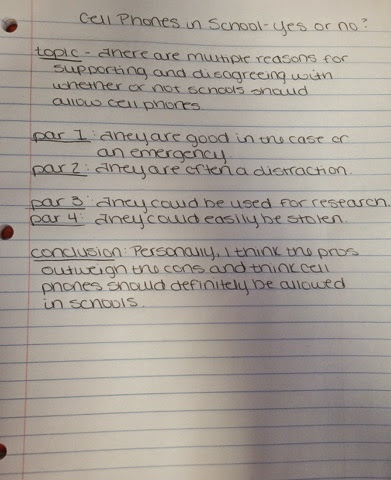 Cell Phones in School-Yes or no?
topic - There are multiple reasons for
supporting and disagreeing with
whether or not schools should
allow cell phones.
par 1: They are good in the case of
an emergency.
par 2: They are often a distraction.
par 3: They could be used for research.
par 4: They could easily be stolen.
conclusion: Personally, I think the pros
outweigh the cons and think cell
phones should definitely be allowed
in schools.